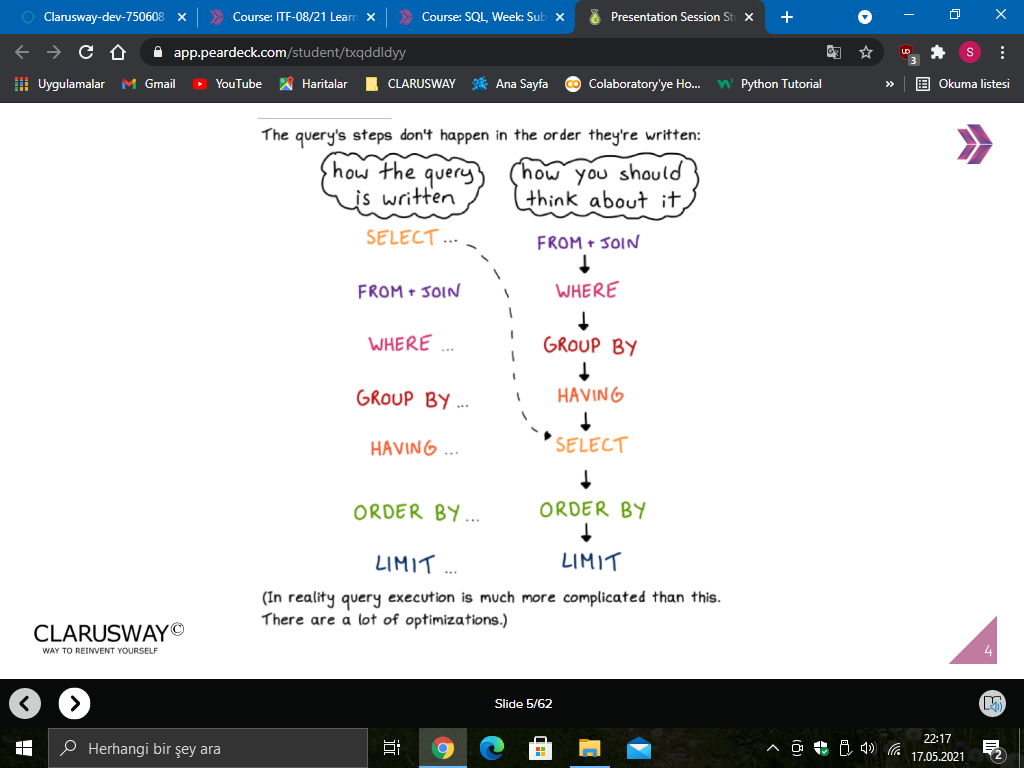 Clarusway-dev-750608
Course: ITF-08/21 Learn
Course: SQL, Week: Sub
Presentation Session St
app.peardeck.com/student/txqddldyy
UD
3
S
Uygulamalar
Gmail
YouTube
Haritalar
CLARUSWAY
Ana Sayfa
Colaboratory'ye Ho...
Python Tutorial
»
Okuma listesi
The query's steps don't happen in the order they're written:
how the query
is written
how you should
think about it
SELECT ...
FROM + JOIN
WHERE ...
GROUP BY ...
HAVING ...
ORDER BY ...
LIMIT ...
FROM + JOIN
WHERE
GROUP BY
HAVING
SELECT
ORDER BY
LIMIT
(In reality query execution is much more complicated than this.
There are a lot of optimizations.)
CLARUSWAY©
WAY TO REINVENT YOURSELF
4
Slide 5/62
Herhangi bir şey ara
22:17
17.05.2021
2